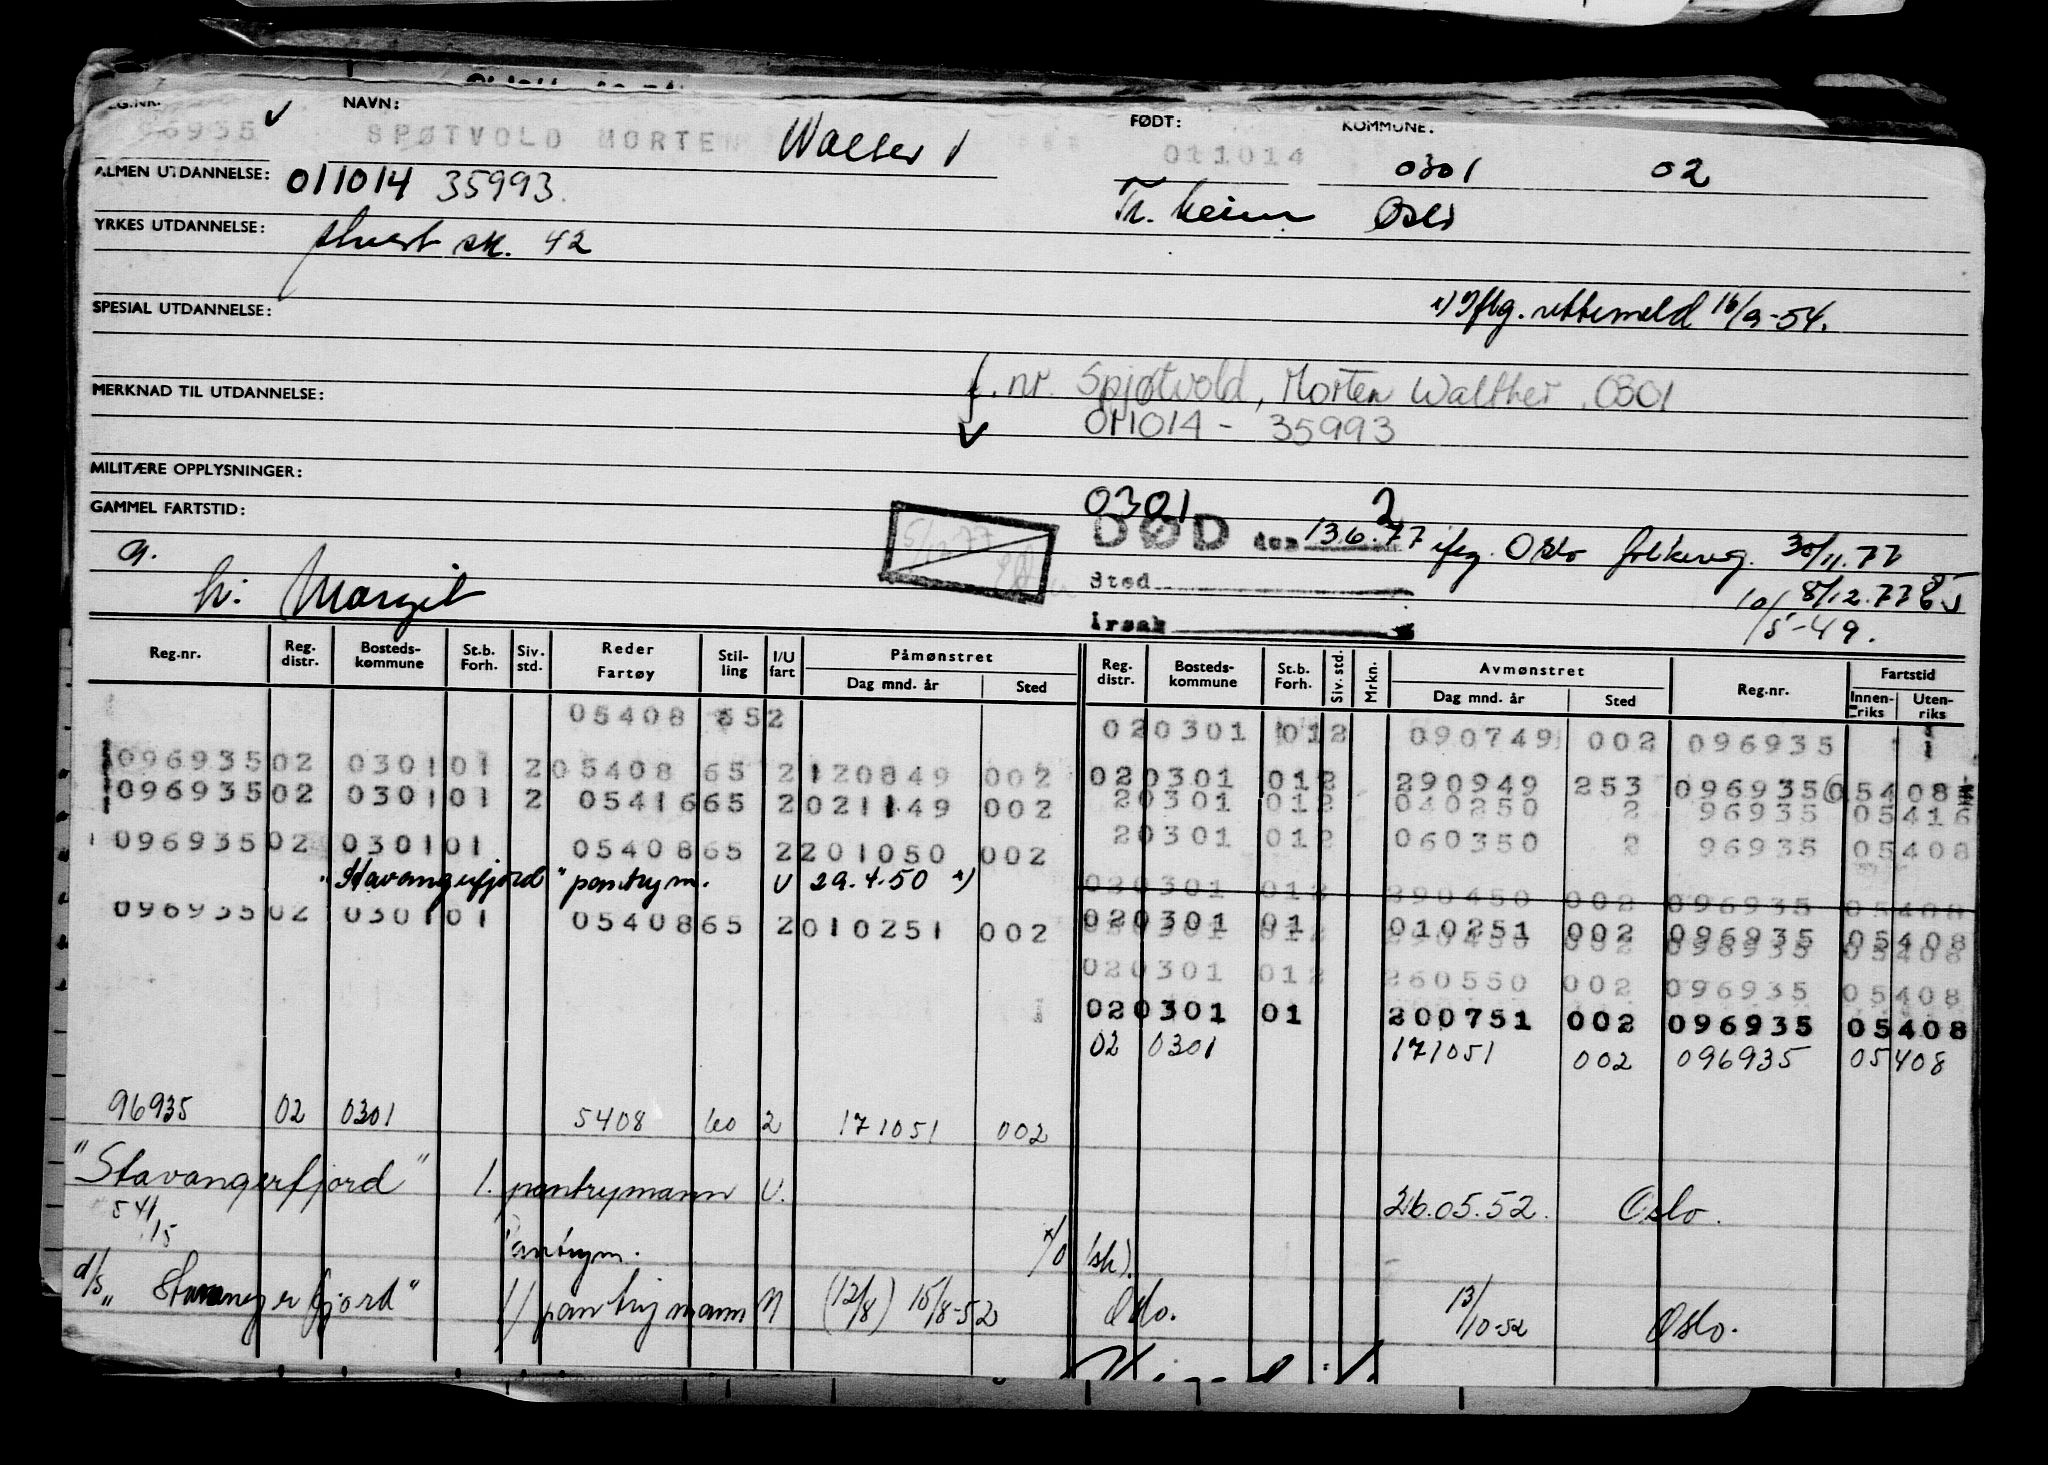 NAVN: FØDT: KOMMUNE:
96935 SPØTVOLD MORTEN Walter 011014 0301 02
ALMEN UTDANNELSE: 011014 35993. Tr.heim Oslo
YRKES UTDANNELSE: stuert sk. 42
SPESIAL UTDANNELSE: x) Iflg. rettemeld 16/9-54.
f. nr. Spjøtvold, Morten Walther 0301
MERKNAD TIL UTDANNELSE: 011014 - 35993
MILITÆRE OPPLYSNINGER:
0301 2
GAMMEL FARTSTID: DØD den 13.6.77 ifg. Oslo folkereg. 30/11.77
g. Sted 8/12.77
h: Margit Årsak 10/5-49.
Reg.nr. Reg. distr. Bosteds-kommune St.b. Forh. Siv. std. Reder Fartøy Stil-ling I/U fart Påmønstret Dag mnd. år Sted Reg. distr. Bosteds-kommune St.b. Forh. Siv. std. Mrkn. Avmønstret Dag mnd. år Sted Reg.nr. Fartstid Innen-riks Uten-riks
05408 652 020301 012 090749 002 096935
096935 02 0301 01 2 05408 65 2 120849 002 020301 012 290949 253 096935 05408
096935 02 0301 01 2 05416 65 2 021149 002 20301 012 040250 2 96935 05416
096935 02 0301 01 05408 65 2 201050 002 20301 012 060350 2 96935 05408
"Stavangerfjord" pantrym. U 29.4.50 x) 020301 012 290450 002 096935 05408
096935 02 0301 01 05408 65 2 010251 002 020301 01 010251 002 096935 05408
020301 012 290450 002 096935 05408
020301 012 260550 002 096935 05408
020301 01 200751 002 096935 05408
02 0301 171051 002 096935 05408
96935 02 0301 5408 60 2 171051 002
"Stavangerfjord" 1. pantrymann U. 26.05.52. Oslo.
54/15 Pantrym. x/0 (sk).
d/s "Stavangerfjord" 1) pantrymann N (12/8) 15/8-52 Oslo. 13/10-52 Oslo.